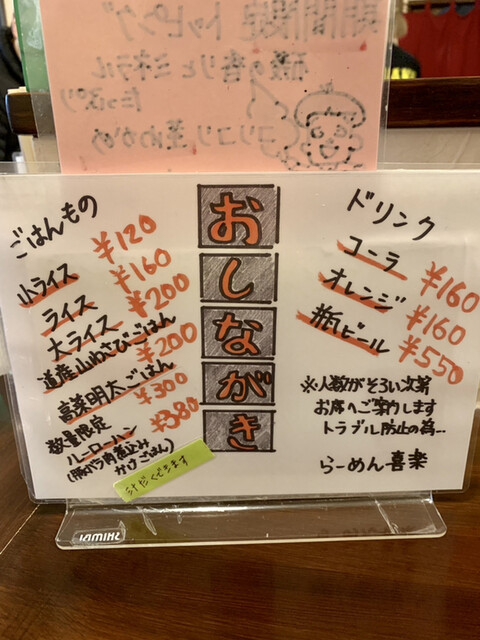 期間限定 トッピング
磯の香りとミネラル
たっぷり
コリコリ 茎わかめ
おしながき
ごはんもの
小ライス ¥120
ライス ¥160
大ライス ¥200
道産山わさびごはん ¥200
喜楽明太ごはん ¥300
数量限定
ルーローハン ¥380
(豚バラ肉煮込み
かけごはん)
汁だくできます
ドリンク
コーラ ¥160
オレンジ ¥160
瓶ビール ¥550
※人数がそろい次第
お席へご案内します
トラブル防止の為…
らーめん喜楽